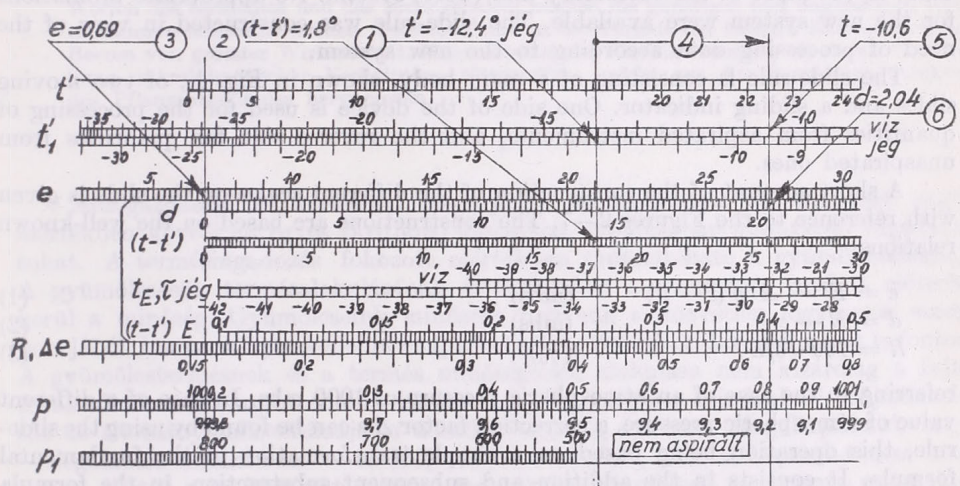 e=0,69 ③ ② (t-t')=1,8° ① t'=-12,4° jég ④ t=-10,6 ⑤
t' 0 10 15 20 21 22 23 24 d=2,04 ⑥
t'₁ -35 -30 -25 -20 -15 -10 víz
-30 -25 -20 -13 -10 -9 jég
e 5 10 15 20 25 30
d 0 5 10 15 20
(t-t') 0 10 15 20 25 30
víz -40 -39 -38 -37 -36 -35 -34 -33 -32 -31 -30
t_E, i jég -42 -41 -40 -39 -38 -37 -36 -35 -34 -33 -32 -31 -30 -29 -28
(t-t') E 0,1 0,15 0,2 0,3 0,4 0,5
R, Δe 0,15 0,2 0,3 0,4 0,5 0,6 0,7 0,8
p 0,3 0,4 0,5 0,6 0,7 0,8 0,9 1001
9,7 9,6 9,5 9,4 9,3 9,2 9,1 999
p₁ 800 700 600 500 nem aspirált